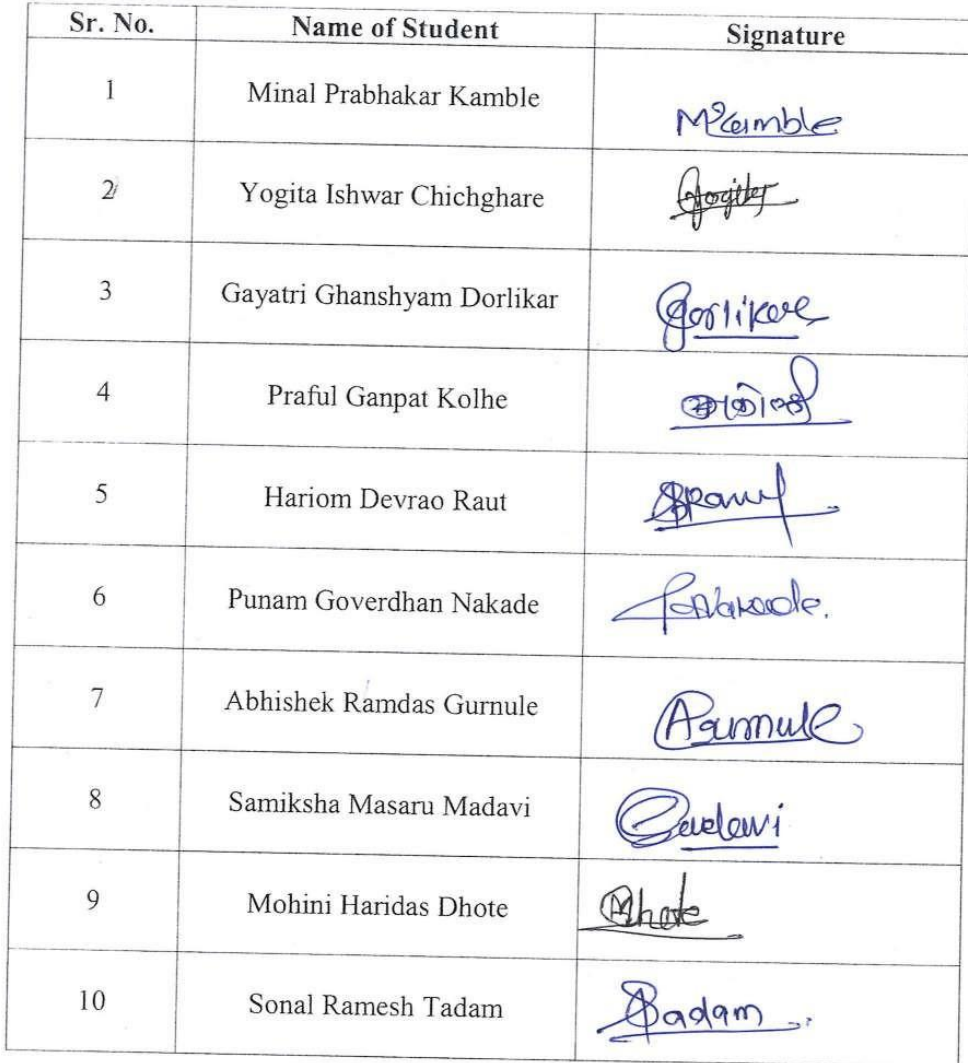 Sr. No. Name of Student Signature
1 Minal Prabhakar Kamble MKamble
2 Yogita Ishwar Chichghare Yogita
3 Gayatri Ghanshyam Dorlikar Dorlikar
4 Praful Ganpat Kolhe
5 Hariom Devrao Raut Raut
6 Punam Goverdhan Nakade Nakade.
7 Abhishek Ramdas Gurnule Gurnule
8 Samiksha Masaru Madavi Madavi
9 Mohini Haridas Dhote Dhote
10 Sonal Ramesh Tadam Tadam